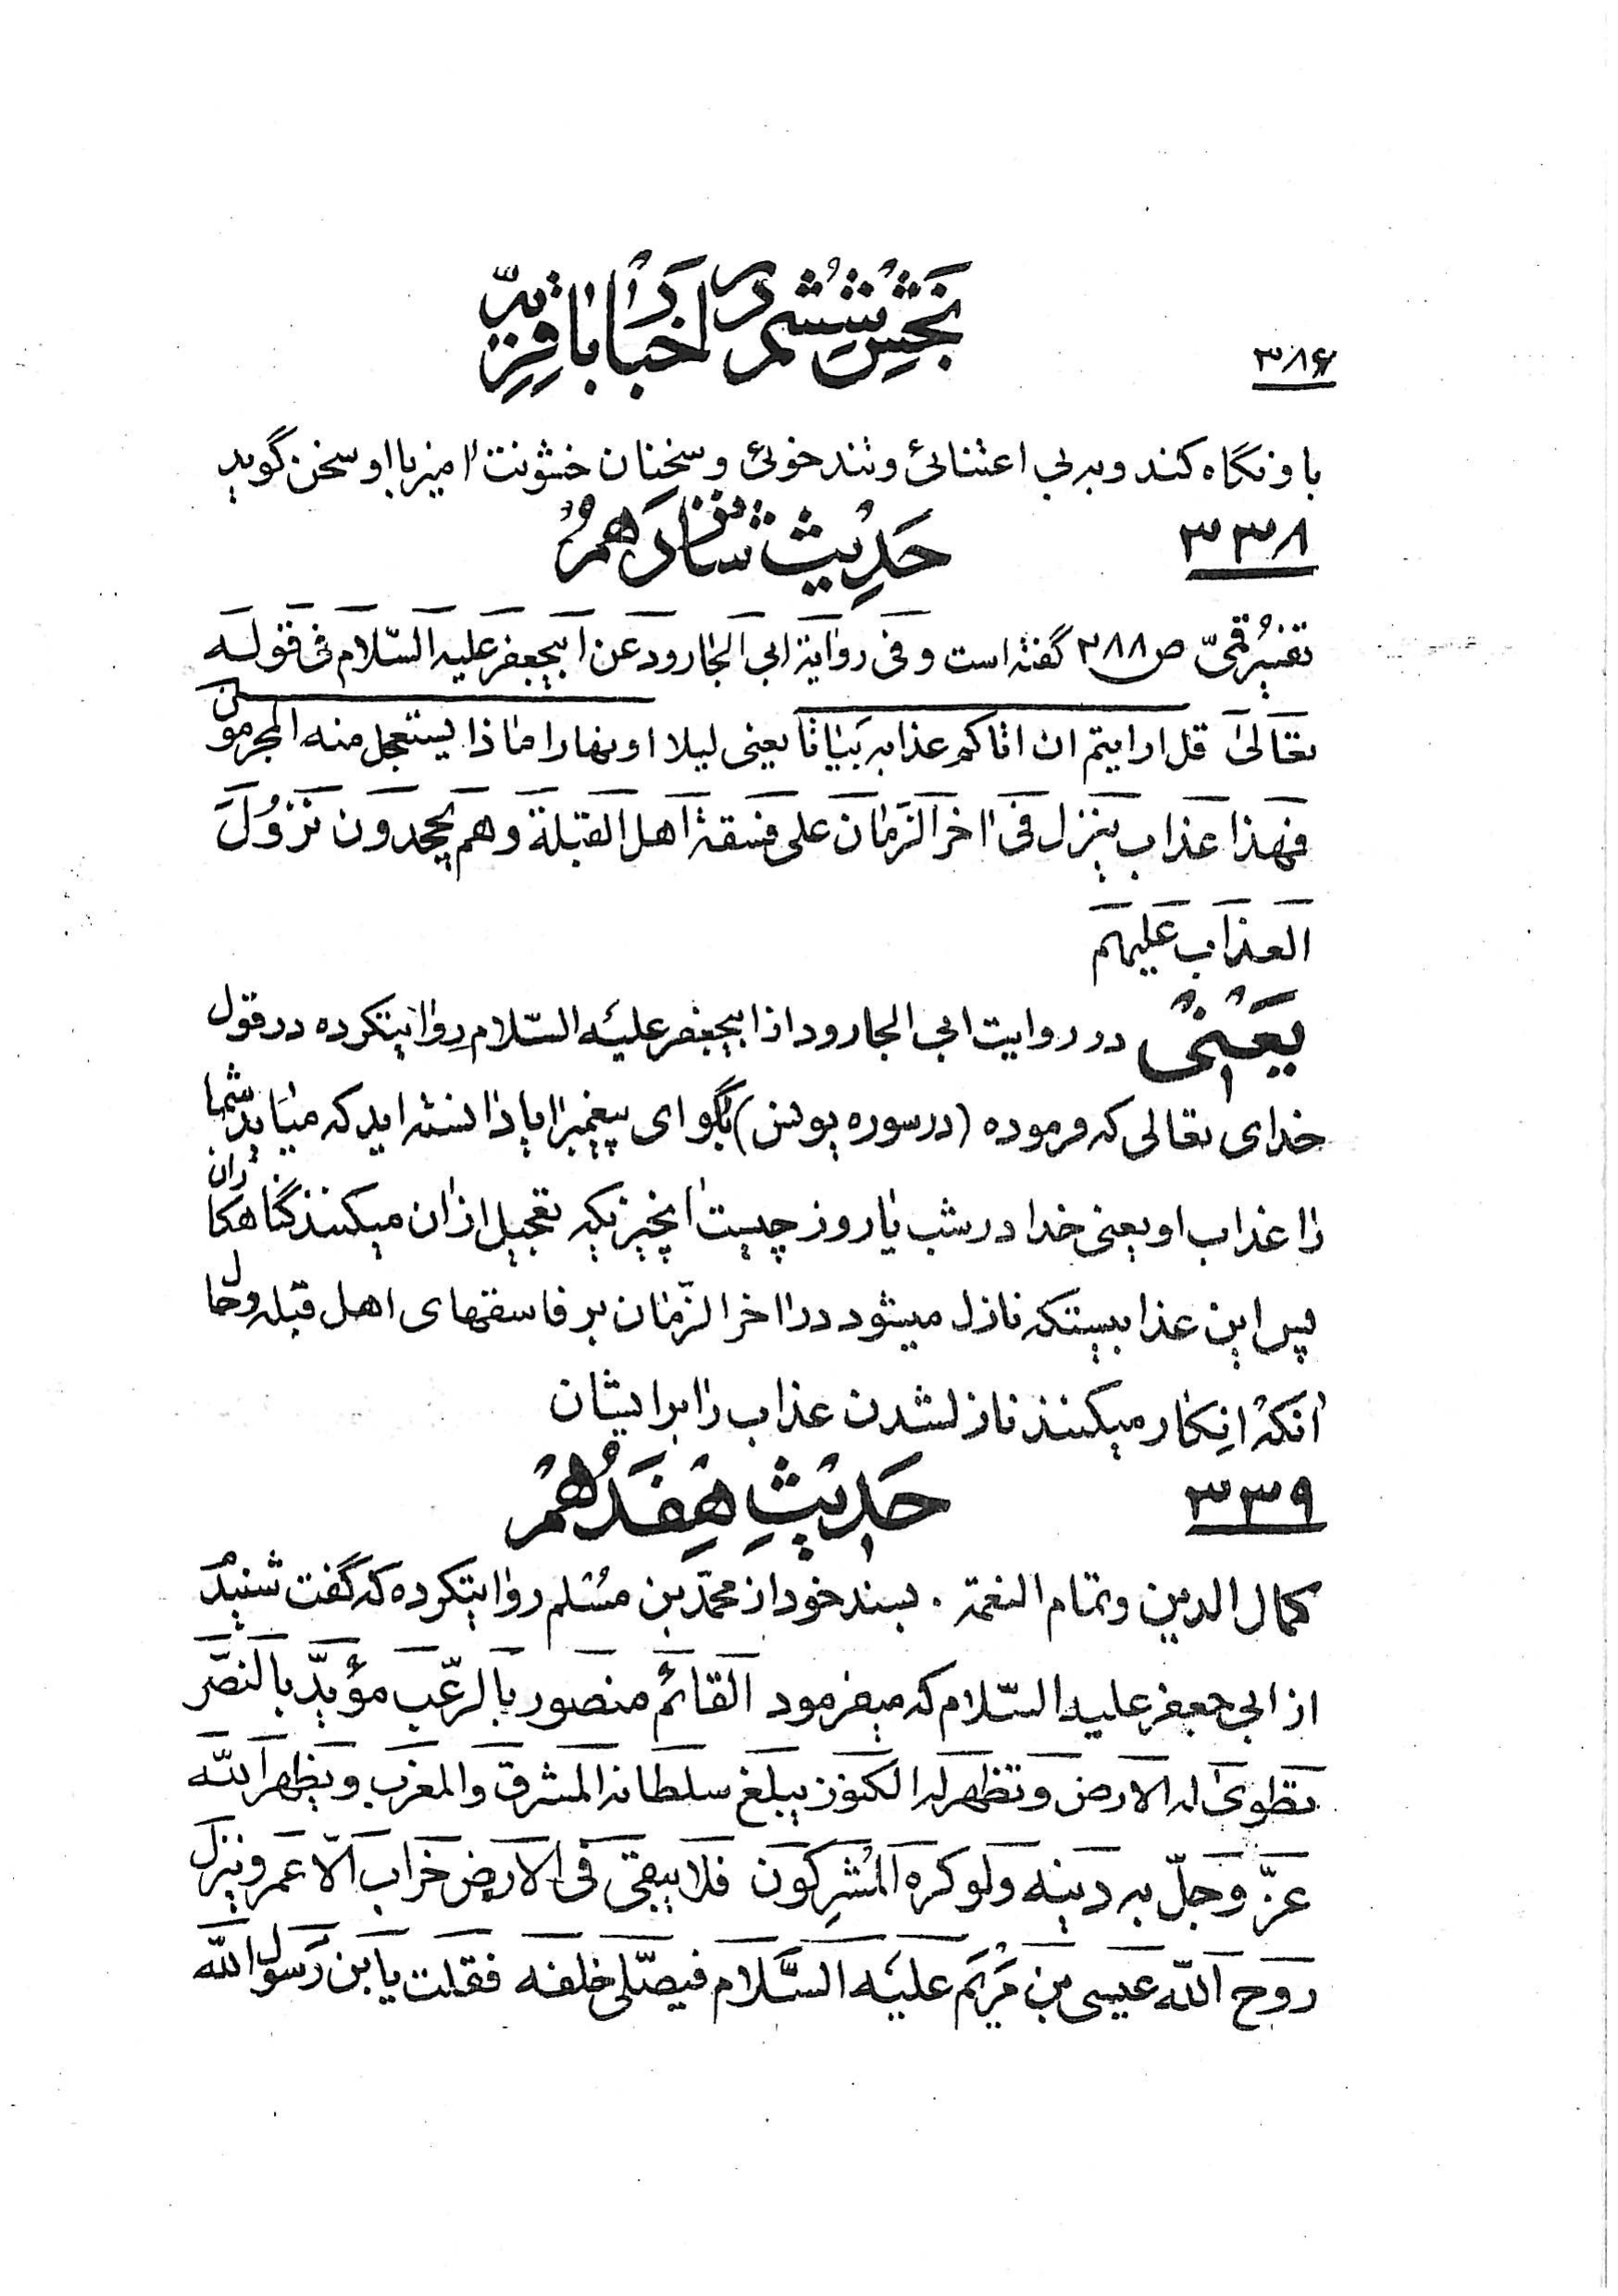 بخش ششم در اخبار باقریّه
۳۸۶
باو نگاه کند و به بی اعتنائی و تند خوئی و سخنان خشونت امیز با او سخن گوید
۳۳۸
حَدِیث شانزدَهُم
تفسیر قمیّ ص ۲۸۸ گفته است و فی روایة ابی الجارود عن ابیجعفر علیه السّلام فی قوله
تعالی قل ارایتم ان اتاکم عذابه بَیاتا یعنی لیلا او نهارا ماذا یستعجل منه المجرمون
فهذا عذاب ینزل فی اخر الزّمان علی فسقة اهل القبلة و هم یجحدون نزُولَ
العذاب علیهم
یَعْنی در روایت ابی الجارود از ابیجعفر علیه السّلام روایتکرده در قول
خدای تعالی که فرموده (در سوره یونس) بگو ای پیغمبر ایا دانسته اید که میاید شما
را عذاب او یعنی خدا در شب یا روز چیست انچیزیکه تعجیل ازان میکنند گناهکاران
پس این عذابیستکه نازل میشود در اخر الزّمان بر فاسقهای اهل قبله و حال
انکه انِکار میکنند نازلشدن عذاب را بر ایشان
۳۳۹
حَدیثِ هِفدَهُم
کمال الدین و تمام النعمة . بسند خود از محمّد بن مُسْلم روایتکرده که گفت شنیدُم
از ابی جعفر علیه السّلام که میفرمود القائم منصور بالرّعب مؤیّد بالنصر
تطوی له الارض و تظهر له الکنوز یبلغ سلطانه المشرق و المغرب و یظهر الله
عزّ و جلّ به دینه و لو کره المُشرِکون فلا یبقی فی الارض خراب الّا عمر و ینزل
روح الله عیسی بن مَرْیَم علیه السَّلام فیصلّی خلفه فقلت یا بن رَسول الله